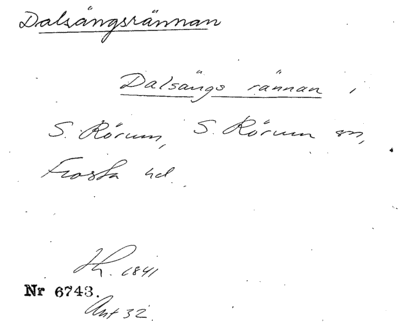 Dalsängsrännan
Dalsängs rännan i
S. Rörum, S. Rörum sn,
Frosta hd.
Lh. 1841
Nr 6743.
Ant 32.